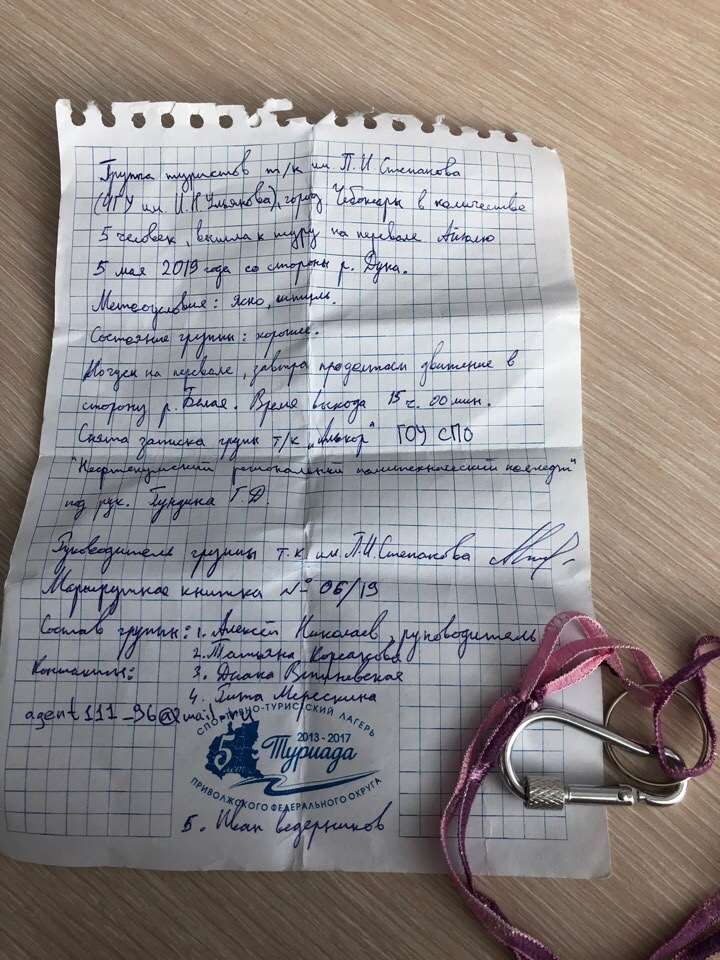 Группа туристов т/к им П.И Степанова
(ЧГУ им. И.Н Ульянова), город Чебоксары в количестве
5 человек, вышла к туру на перевале Айюлю
5 мая 2019 года со стороны р. Дука.
Метеоусловия: Ясно, штиль.
Состояние группы: хорошее.
Ночуем на перевале, завтра продолжаем движение в
сторону р. Белая. Время выхода 15 ч. 00 мин.
Снята записка групы т/к „Алькор" ГОУ СПО
"Нефтекумский региональный политехнический колледж"
под рук. Г.Д.
Руководитель группы т.к им. П.И.Степанова
Маршрутная книжка № 06/19
Состав групы: 1. Алексей Николаев, руководитель
2. Татьяна Корсакова
Контакты: 3. Диана
4. Гита
agent111_96@mail.ru
СПОРТИВНО-ТУРИСТСКИЙ ЛАГЕРЬ
2013 - 2017
5 лет Туриада
ПРИВОЛЖСКОГО ФЕДЕРАЛЬНОГО ОКРУГА
5. Иван ведерников